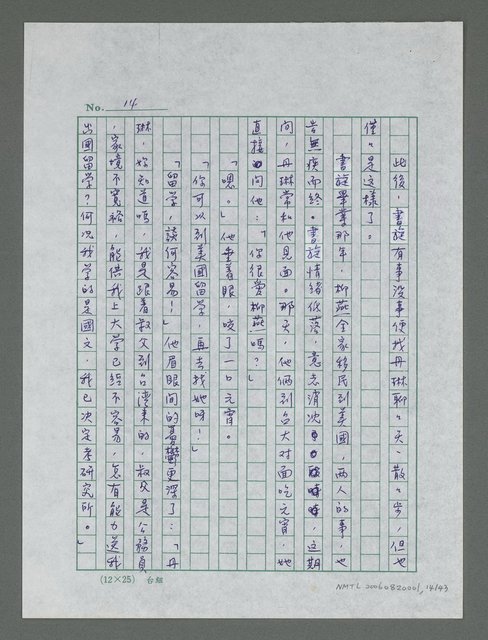 No. 14
此後，書旋有事没事便找丹琳聊々天、散々步，但也
僅々是這樣了。
書旋畢業那年，柳燕全家移民到美國，兩人的事，也
告無疾而終。書旋情緒低落，意志消沈，這期
間，丹琳常和他見面。那天，他倆到台大对面吃元宵，她
直接問他：「你很愛柳燕嗎？」
「嗯。」他垂着眼，咬了一口元宵。
「你可以到美國留学，再去找她呀！」
「留学，談何容易！」他眉眼間的憂鬱更深了：「丹
琳，妳知道嗎，我是跟着叔父到台湾来的，叔父是公務員
，家境不寬裕，能供我上大学已経不容易，怎有能力送我
出國留学？何况我学的是國文，我已决定考研究所。」
(12×25) 台組
NMTL 20060820001, 14/43